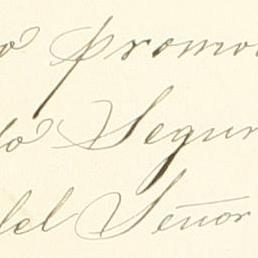 o promo
do Segun
del Señor